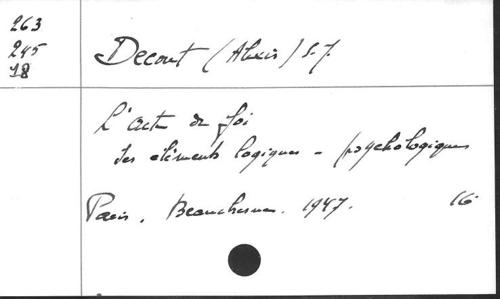 263
245
18
Decout (Alexis) S.J.
L'acte de foi
Ses éléments logiques - psychologiques
Paris, Beauchesne. 1947. 16